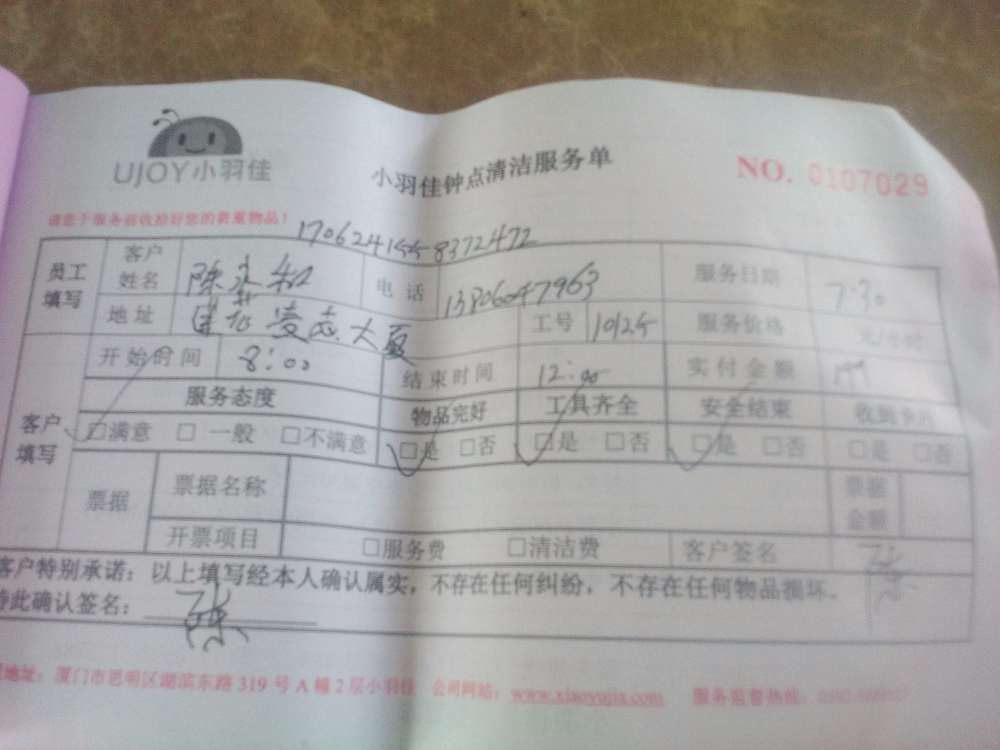 UJOY小羽佳
小羽佳钟点清洁服务单
NO. 0107029
请您于服务前收拾好您的贵重物品!
员工填写 客户姓名 陈永和 电话 13806047963 服务日期 7.30
地址 莲花凌志大厦 工号 服务价格 元/小时
客户填写 开始时间 8:00 结束时间 12:00 实付金额
服务态度 物品完好 工具齐全 安全结束
□满意 □一般 □不满意 □是 □否 □是 □否 □是 □否 □是 □否
票据 票据名称 票据金额
开票项目 □服务费 □清洁费 客户签名 陈
客户特别承诺:以上填写经本人确认属实,不存在任何纠纷,不存在任何物品损坏。
特此确认签名: 陈
地址:厦门市思明区湖滨东路 319 号 A 幢 2 层小羽佳 公司网站:www.xiaoyujia.com 服务监督热线: